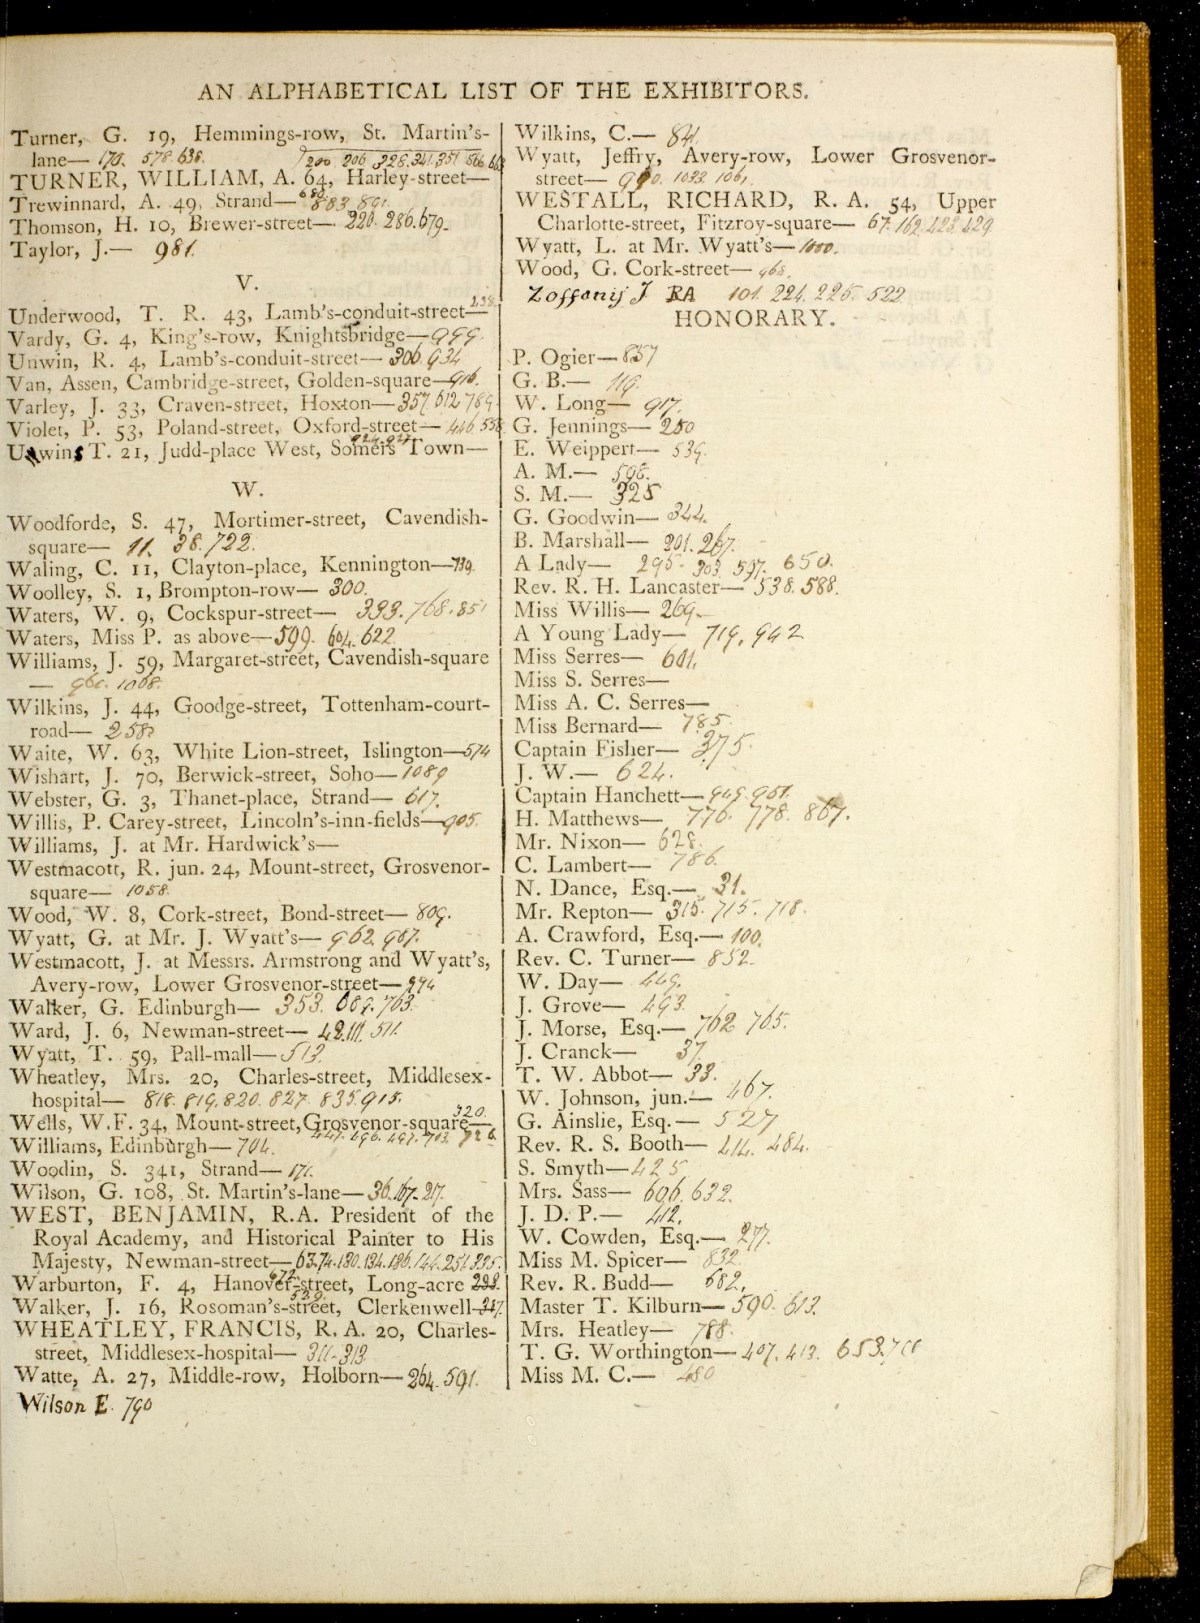 AN ALPHABETICAL LIST OF THE EXHIBITORS.
Turner, G. 19, Hemmings-row, St. Martin's-
lane— 170. 578. 638.
200. 206. 228. 341. 351.
TURNER, WILLIAM, A. 64, Harley-street—
Trewinnard, A. 49, Strand— 680. 883. 891.
Thomson, H. 10, Brewer-street— 220. 286. 679.
Taylor, J.— 981.
V.
Underwood, T. R. 43, Lamb's-conduit-street—
Vardy, G. 4, King's-row, Knightsbridge— 999.
Unwin, R. 4, Lamb's-conduit-street— 306. 934
Van, Assen, Cambridge-street, Golden-square— 916.
Varley, J. 33, Craven-street, Hoxton— 357. 612 789
Violet, P. 53, Poland-street, Oxford-street— 446. 558
Unwins T. 21, Judd-place West, Somers Town—
W.
Woodforde, S. 47, Mortimer-street, Cavendish-
square— 11. 38. 722.
Waling, C. 11, Clayton-place, Kennington— 739.
Woolley, S. 1, Brompton-row— 300.
Waters, W. 9, Cockspur-street— 333. 768. 851
Waters, Miss P. as above— 599. 604. 622
Williams, J. 59, Margaret-street, Cavendish-square
— 960. 1008.
Wilkins, J. 44, Goodge-street, Tottenham-court-
road— 258
Waite, W. 63, White Lion-street, Islington— 574
Wishart, J. 70, Berwick-street, Soho— 1089
Webster, G. 3, Thanet-place, Strand— 617.
Willis, P. Carey-street, Lincoln's-inn-fields— 905.
Williams, J. at Mr. Hardwick's—
Westmacott, R. jun. 24, Mount-street, Grosvenor-
square— 1058.
Wood, W. 8, Cork-street, Bond-street— 809.
Wyatt, G. at Mr. J. Wyatt's— 962. 987.
Westmacott, J. at Messrs. Armstrong and Wyatt's,
Avery-row, Lower Grosvenor-street— 994
Walker, G. Edinburgh— 353. 689. 703.
Ward, J. 6, Newman-street— 48. 111. 511.
Wyatt, T. 59, Pall-mall— 513.
Wheatley, Mrs. 20, Charles-street, Middlesex-
hospital— 818. 819. 820. 827. 835. 915.
320.
Wells, W.F. 34, Mount-street, Grosvenor-square—
447. 496. 497. 703. 726.
Williams, Edinburgh— 704.
Woodin, S. 341, Strand— 171.
Wilson, G. 108, St. Martin's-lane— 36. 167. 217.
WEST, BENJAMIN, R.A. President of the
Royal Academy, and Historical Painter to His
Majesty, Newman-street— 63. 74. 130. 134. 136. 144. 251. 335.
Warburton, F. 4, Hanover-street, Long-acre
Walker, J. 16, Rosoman's-street, Clerkenwell—
WHEATLEY, FRANCIS, R. A. 20, Charles-
street, Middlesex-hospital— 311. 313.
Watte, A. 27, Middle-row, Holborn— 264. 591.
Wilson E. 790
Wilkins, C.— 841.
Wyatt, Jeffry, Avery-row, Lower Grosvenor-
street— 990. 1033. 1061.
WESTALL, RICHARD, R. A. 54, Upper
Charlotte-street, Fitzroy-square— 67. 162. 428. 429
Wyatt, L. at Mr. Wyatt's— 1000.
Wood, G. Cork-street— 968.
Zoffanij J RA 101. 224. 225. 522
HONORARY.
P. Ogier— 857
G. B.— 119.
W. Long— 917.
G. Jennings— 250
E. Weippert— 539.
A. M.— 598.
S. M.— 325
G. Goodwin— 344.
B. Marshall— 201. 267.
A Lady— 295. 303. 597. 650.
Rev. R. H. Lancaster— 538. 588.
Miss Willis— 269.
A Young Lady— 719. 942
Miss Serres— 601.
Miss S. Serres—
Miss A. C. Serres—
Miss Bernard— 785.
Captain Fisher— 375.
J. W.— 624.
Captain Hanchett— 949. 951.
H. Matthews— 776. 778. 867.
Mr. Nixon— 628.
C. Lambert— 786.
N. Dance, Esq.— 31.
Mr. Repton— 315. 715. 718.
A. Crawford, Esq.— 100.
Rev. C. Turner— 852.
W. Day— 449.
J. Grove— 493.
J. Morse, Esq.— 762 765.
J. Cranck— 37
T. W. Abbot— 33.
W. Johnson, jun.— 467.
G. Ainslie, Esq.— 527
Rev. R. S. Booth— 414. 484.
S. Smyth— 425
Mrs. Sass— 606. 632.
J. D. P.— 412.
W. Cowden, Esq.— 277.
Miss M. Spicer— 832.
Rev. R. Budd— 682.
Master T. Kilburn— 590. 613.
Mrs. Heatley— 788.
T. G. Worthington— 407. 413. 653. 700
Miss M. C.— 480